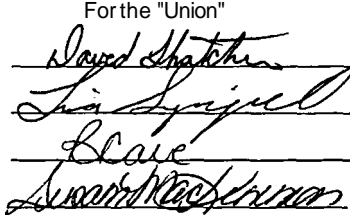 For the "Union"
David Thatcher
Lisa
B Cave
Susan MacKinnon